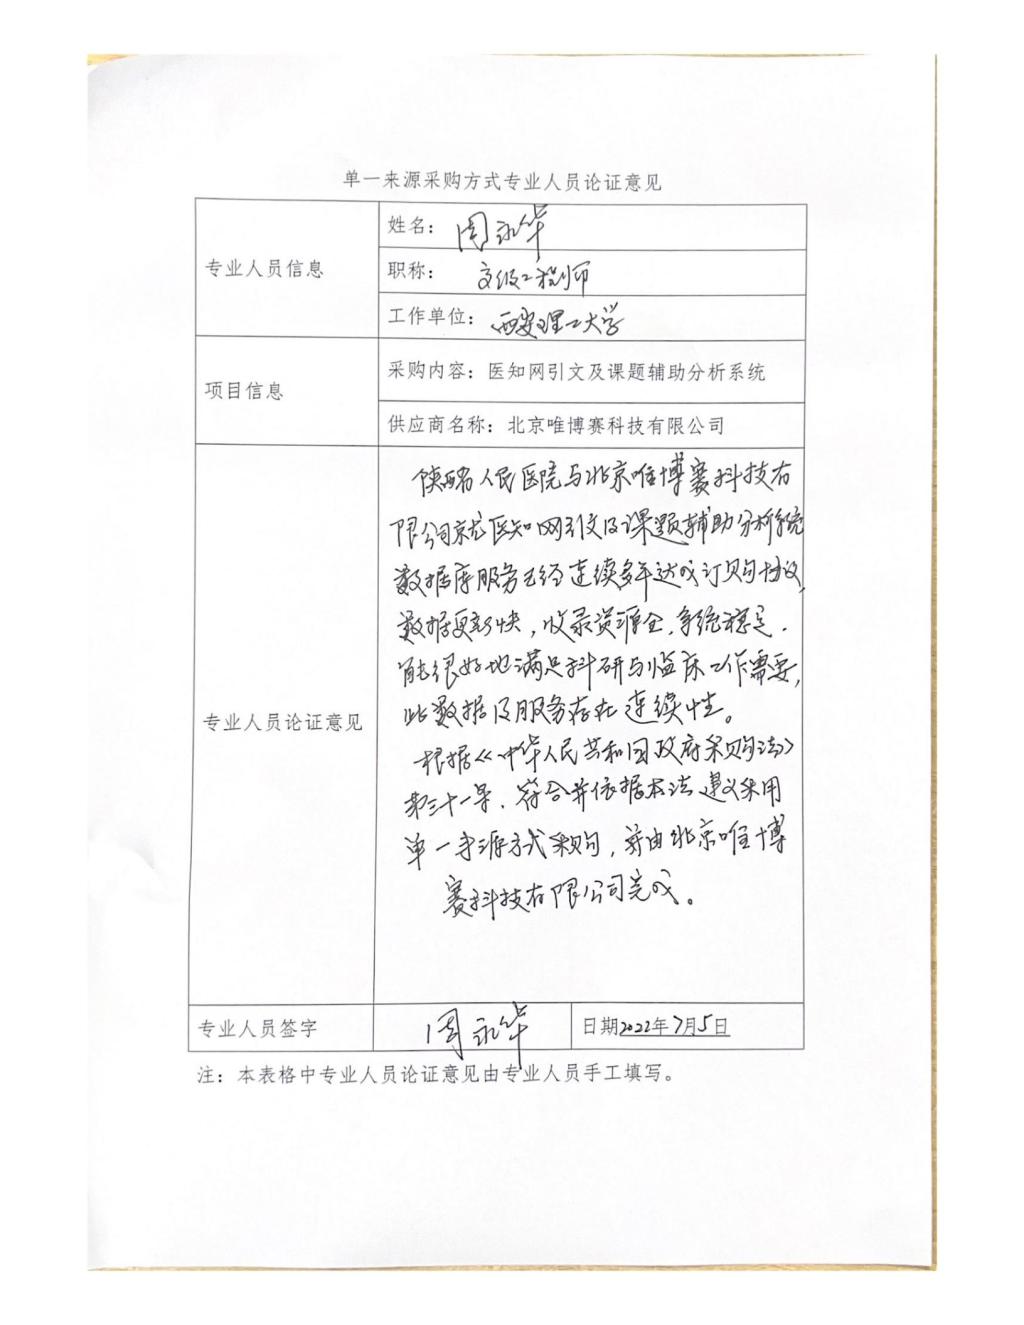 单一来源采购方式专业人员论证意见
专业人员信息
姓名：周永华
职称：高级工程师
工作单位：西安理工大学
项目信息
采购内容：医知网引文及课题辅助分析系统
供应商名称：北京唯博赛科技有限公司
专业人员论证意见
陕西省人民医院与北京唯博赛科技有
限公司就医知网引文及课题辅助分析系统
数据库服务已经连续多年达成订购协议，
数据更新快，收录资源全，系统稳定，
能很好地满足科研与临床工作需要，
此数据及服务存在连续性。
根据《中华人民共和国政府采购法》
第三十一条，符合并依据本法建议采用
单一来源方式采购，并由北京唯博
赛科技有限公司完成。
专业人员签字
周永华
日期2022年7月5日
注：本表格中专业人员论证意见由专业人员手工填写。